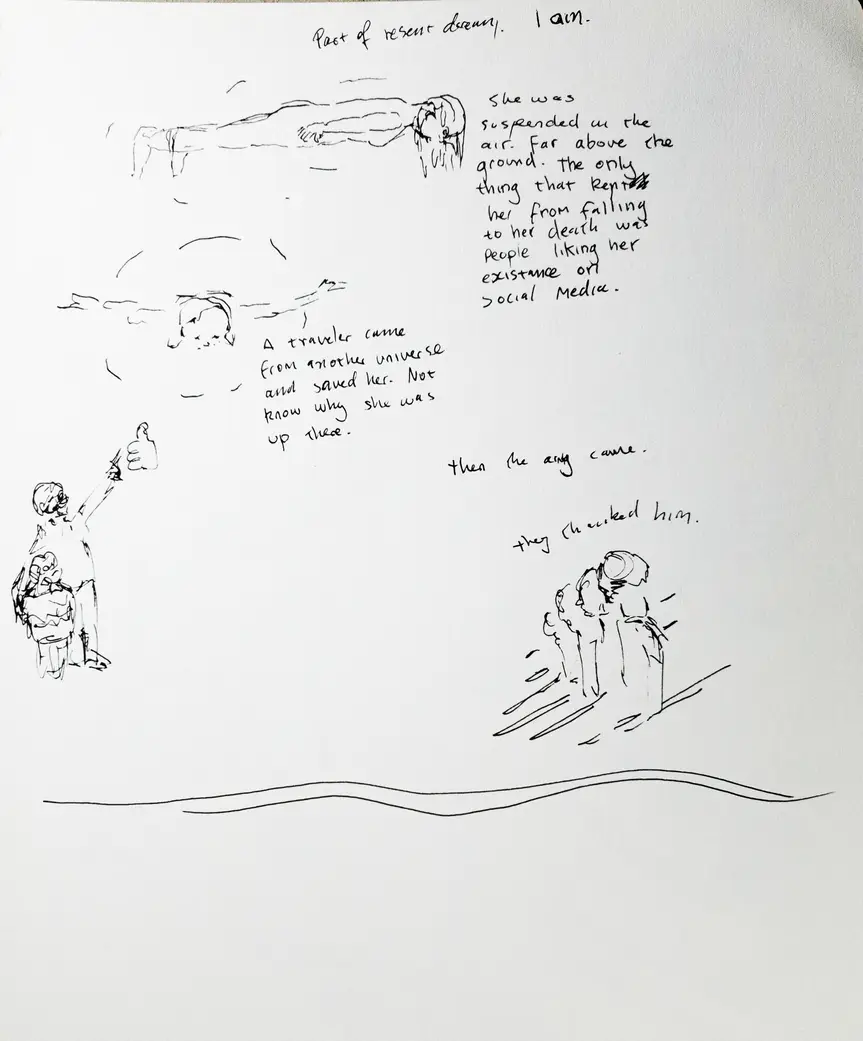 Part of resent dream. I am.
She was
suspended in the
air. Far above the
ground. The only
thing that kept
her from falling
to her death was
People liking her
existance on
social media.
A traveler came
from another universe
and saved her. Not
know why she was
up there.
then the came.
they him.